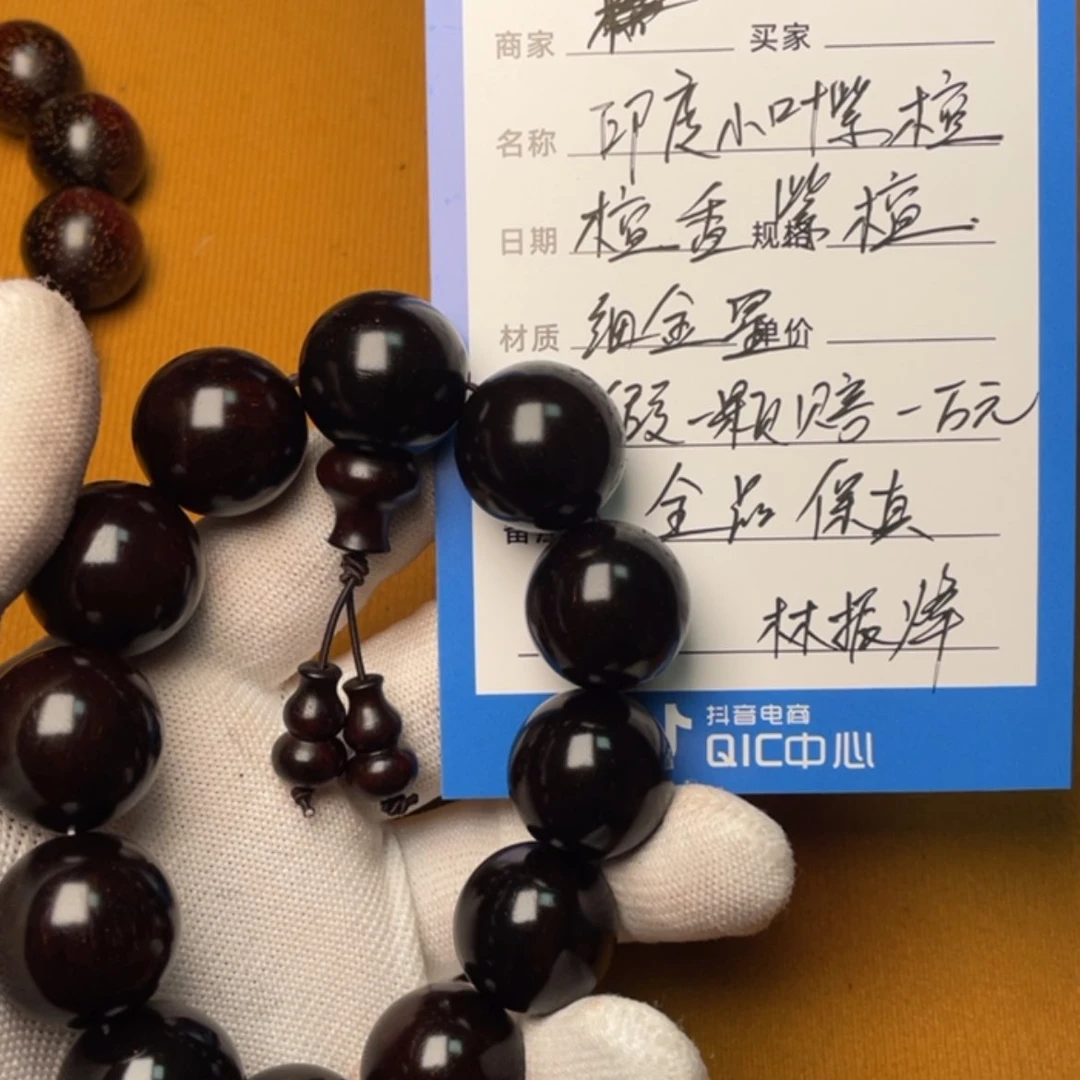 商家 买家
名称 印度小叶紫檀
日期 檀香紫檀 规格
材质 细金星 单价
假一颗赔一万元
全品保真
林振烽
抖音电商
QIC中心